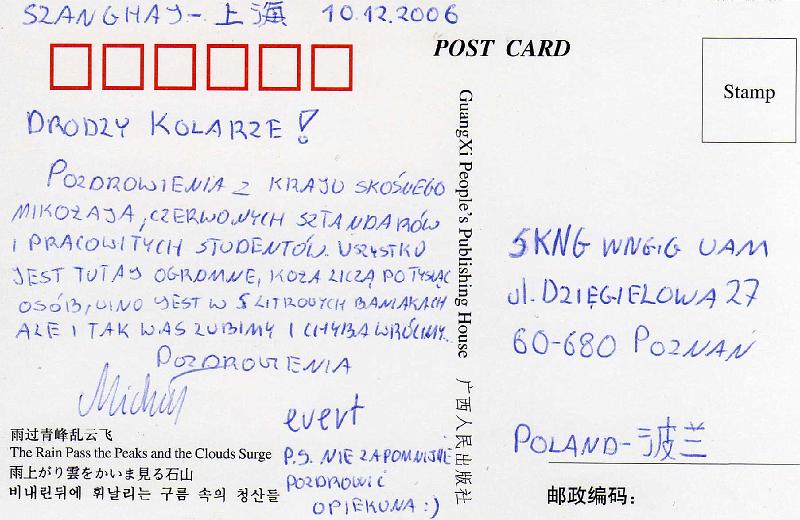 SZANGHAY - 上海 10.12.2006
POST CARD
Stamp
DRODZY KOLARZE!
POZDROWIENIA Z KRAJU SKOŚNEGO
MIKOŁAJA, CZERWONYCH SZTANDARÓW
I PRACOWITYCH STUDENTÓW. WSZYSTKO
JEST TUTAJ OGROMNE, KOŁA LICZĄ PO TYSIĄC
OSÓB, WINO JEST W 5 LITROWYCH BANIAKACH
ALE I TAK WAS LUBIMY I CHYBA WRÓCIMY...
POZDROWIENIA
Michał
evert
P.S. NIE ZAPOMNIJCIE
POZDROWIĆ
OPIEKUNA :)
雨过青峰乱云飞
The Rain Pass the Peaks and the Clouds Surge
雨上がり雲をかいま見る石山
비내린뒤에 휘날리는 구름 속의 청산들
GuangXi People's Publishing House 广西人民出版社
SKNG WNGiG UAM
ul. DZIĘGIELOWA 27
60-680 POZNAŃ
POLAND - 波兰
邮政编码: